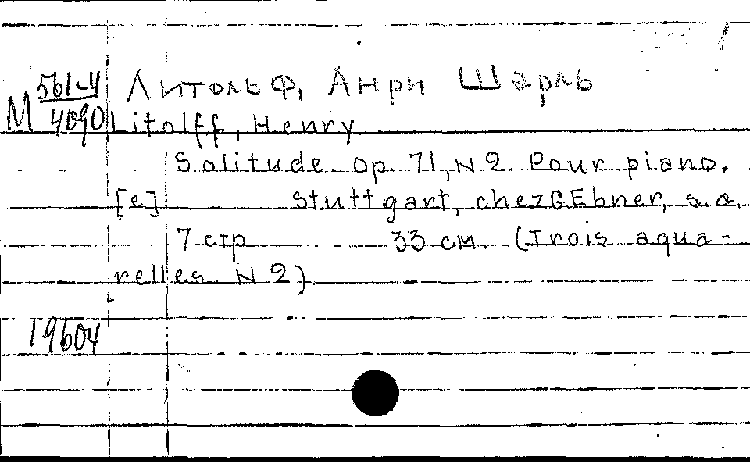 М 561-4/4090 Литольф, Анри Шарль
Litolff, Henry
Solitude. Op. 71, N 2. Pour piano.
[e] Stuttgart, chez G. Ebner, s.a.
7 стр 33 см. (Trois aqua-
relles N 2)
19604